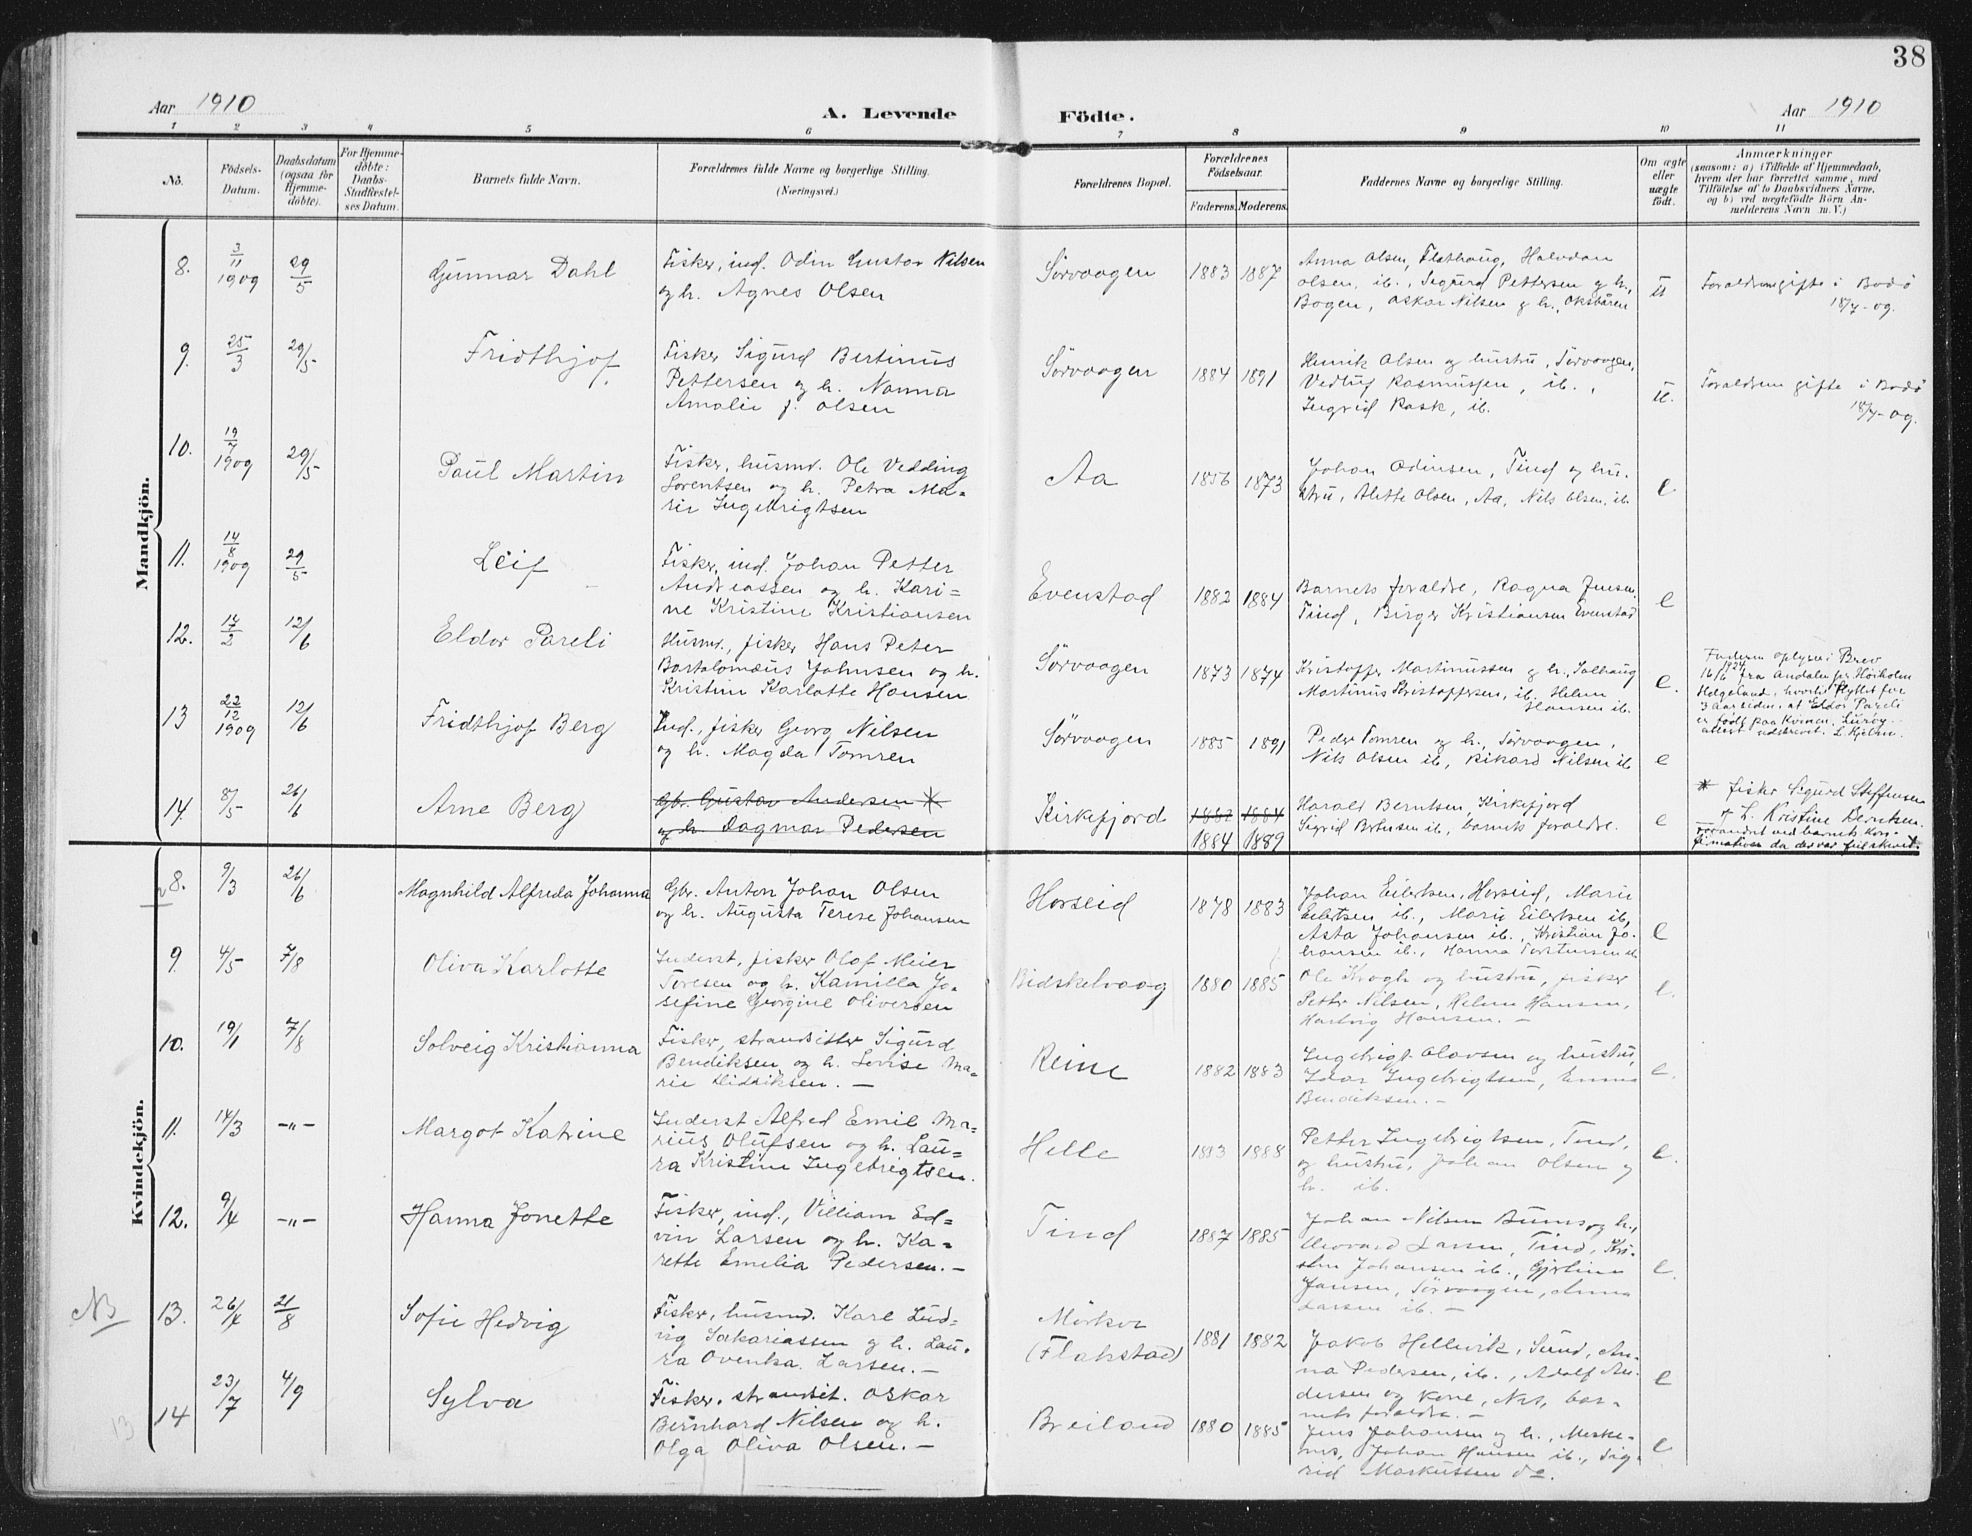 38
Aar 1910
A. Levende Födte.
Aar 1910
1 2 3 4 5 6 7 8 9 10 11
No.
Födsels-
Datum.
Daabsdatum
(ogsaa for
Hjemme-
döbte).
For Hjemme-
döbte:
Daabs-
Stadfæstel-
ses Datum.
Barnets fulde Navn.
Forældrenes fulde Navne og borgerlige Stilling.
(Næringsvei.)
Forældrenes Bopæl.
Forældrenes
Födselsaar.
Faderens. Moderens.
Faddernes Navne og borgerlige Stilling.
Om ægte
eller
uægte
födt.
Anmærkninger
(saasom: a) i Tilfælde af Hjemmedaab,
hvem der har forrettet samme, med
Tilföielse af to Daabsvidners Navne,
og b) ved uægtefödte Börn An-
melderens Navn m. V.)
Mandkjön.
8. 3/11 1909 29/5 Gunnar Dahl
Fisker, ind. Odin Gustav Nilsen
og h. Agnes Olsen
Sørvaagen 1883 1887
Anna Olsen, Flathaug, Halvdan
Olsen, ib., Sigurd Pettersen og h.,
Bogen, Oskar Nilsen g h., Oksbåren
u
Forældrene gifte i Bodø
18/7-09.
9. 25/3 29/5 Fridthjof.
Fisker Sigurd Bertinus
Pettersen og h. Nanna
Amalie f. Olsen
Sørvaagen 1884 1891
Henrik Olsen og hustru, Sørvaagen,
Vedluf Rasmussen, ib.,
Ingrid Rask, ib.
u.
Forældrene gifte i Bodø
18/7-09.
10. 19/7 1909 29/5 Paul Martin
Fisker, husmd. Ole Vedding
Lorentsen og h. Petra Ma=
rie Ingebrigtsen
Aa 1856 1873
Johan Odinsen, Tind og hu-
stru, Alette Olsen, Aa, Nils Olsen, ib.
e
11. 14/8 1909 29/5 Leif
Fisker, ind. Johan Petter
Andreassen og h. Kari=
ne Kristine Kristiansen
Evenstad 1882 1884
Barnets forældre, Ragna Jensen,
Tind, Birger Kristiansen Evenstad
e
12. 17/2 12/6 Eldor Pareli
Husmd., fisker Hans Peter
Bartolomæus Johnsen og h.
Kristine Karlotte Hansen
Sørvaagen 1873 1874
Kristoffer Martinussen g h., Solhaug
Martinus Kristoffersen, ib. Helen
Hansen ib.
e.
Faderen oplyser i Brev
16/6 1924 fra Andalen pr Hörholm
Helgeland, hvortil flyttet for
3 Aar siden, at Eldor Pareli
er født paa Kvinen, Lurøy.
attest udskrevet. L. Kjelm.
13 22/12 1909 12/6 Fridthjof Berg
Ind., fisker Georg Nilsen
og h. Magda Tomren
Sørvaagen 1885 1891
Peder Tomren og h., Sørvaagen,
Nils Olsen ib, Rikard Nilsen ib
e
14. 8/5 26/6 Arne Berg
Gbr. Gustav Andersen *
og h. Dagmar Pedersen
Kirkefjord 1882 1884
1884 1889
Harald Berntsen, Kirkefjord
Sigrid Berntsen ib, barnets forældre.
e
* fisker Sigurd Steffensen
+ h. Kristine Berntsen.
Forandret ved barnets kon-
firmation da der var feilskrevet. *
Kvindekjön.
8. 9/3 26/6 Magnhild Alfreda Johanna
Gbr. Anton Johan Olsen
og h. Augusta Terese Johansen
Horseid 1878 1883
Johan Eilertsen, Horseid, Marie
Eilertsen ib., Marie Eilertsen ib,
Asta Johansen ib., Kristian Jo-
hansen ib., Hanna Torstensen ib
e
9. 4/5 7/8 Oliva Karlotte
Inderst, fisker Olaf Meier
Toresen og h. Kamilla Jo-
sefine Georgine Oliversen
Bidskelvaag 1880 1885
Ole Krogh og hustru, fisker
Petter Nilsen, Helene Hansen,
Hartvig Hansen. -
e.
10. 19/1 7/8 Solveig Kristianna
Fisker, strandsitter Sigurd
Bendiksen og h. Lovise Ma=
rie Didriksen. -
Reine 1882 1883
Ingebrigt Olavsen og hustru,
Idar Ingebrigtsen, Emma
Bendiksen. -
e.
11. 14/3 -"- Margot Katrine
Inderst Alfred Emil Ma=
rius Olufsen og h. Lau=
ra Kristine Ingebrigtsen.
Helle 1883 1888
Petter Ingebrigtsen, Tind,
og hustru, Johan Olsen og
h. ib.
e.
12. 9/4 -"- Hanna Jonette
Fisker, ind., Villiam Ed=
vin Larsen og h. Ka=
rette Emelia Pedersen. -
Tind 1887 1885
Johan Nilsen Buens og h.,
Larsen, Tind, Kri-
stine Johansen ib., Gjertine
Jansen, Sørvaagen, Anna
Larsen ib. -
e.
NB 13. 26/4 21/8 Sofie Hedvig
Fisker, husmd. Karl Lud=
vig Sakariassen g h. Lau=
ra Ovenka Larsen. -
Mörkve
(Flakstad) 1881 1882
Jakob Hellevik, Sund, An-
na Pedersen, ib., Adolf An-
dersen og kone, Nes, bar-
nets forældre. -
e
14 23/7 4/9 Sylva
Fisker, strandsit. Oskar
Bernhard Nilsen og h.
Olga Oliva Olsen. -
Breiland 1880 1885
Jens Johansen og h., Meske-
nes, Johan Hansen ib., Sig-
rid Markussen do.
e
13